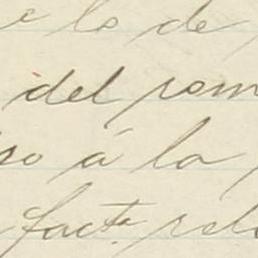 e lo de
del rom
so á la
fact.ª rela